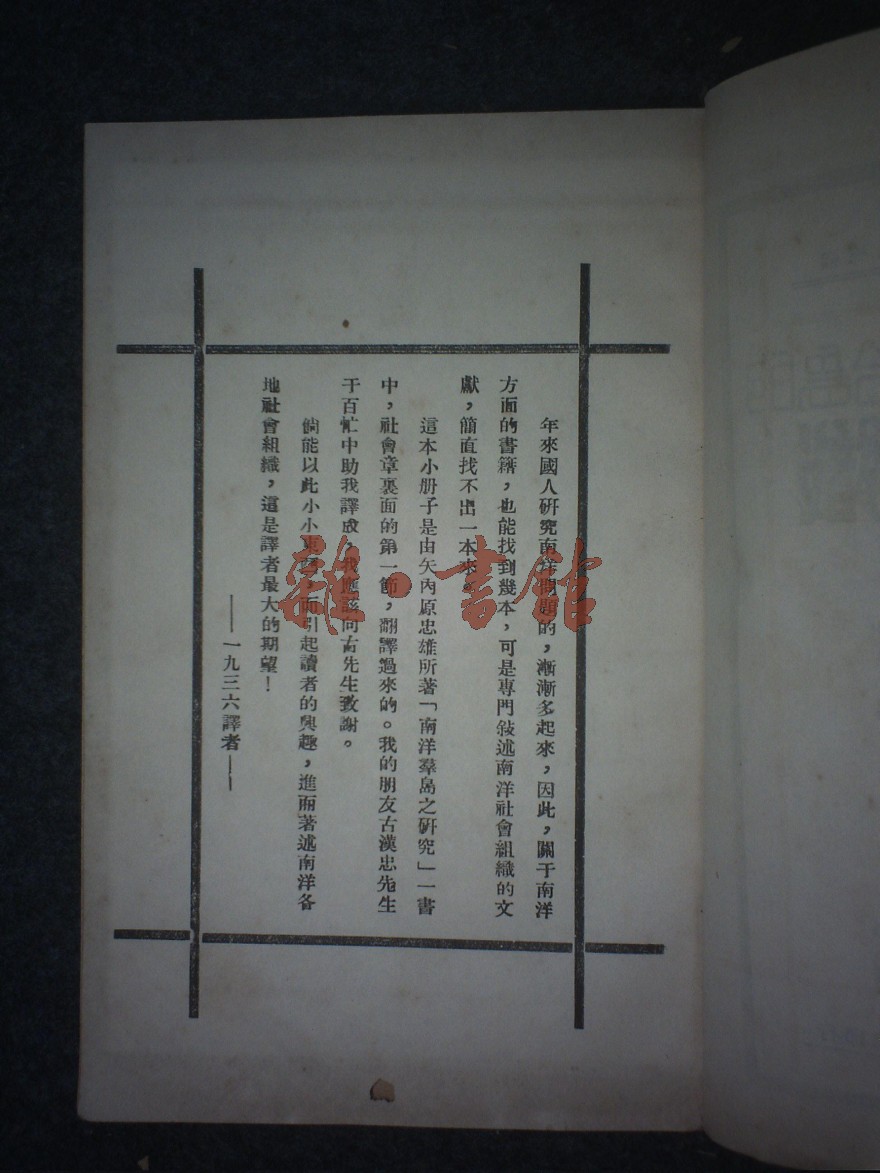 年來國人硏究南洋問題的，漸漸多起來，因此，關于南洋
方面的書籍，也能找到幾本，可是專門敍述南洋社會組織的文
獻，簡直找不出一本來。
這本小册子是由矢內原忠雄所著「南洋羣島之硏究」一書
中，社會章裏面的第一節，翻譯過來的。我的朋友古漢忠先生
于百忙中助我譯成，我應該向古先生致謝。
倘能以此小小東西，而引起讀者的興趣，進而著述南洋各
地社會組織，這是譯者最大的期望！
——一九三六譯者——
雜·書館